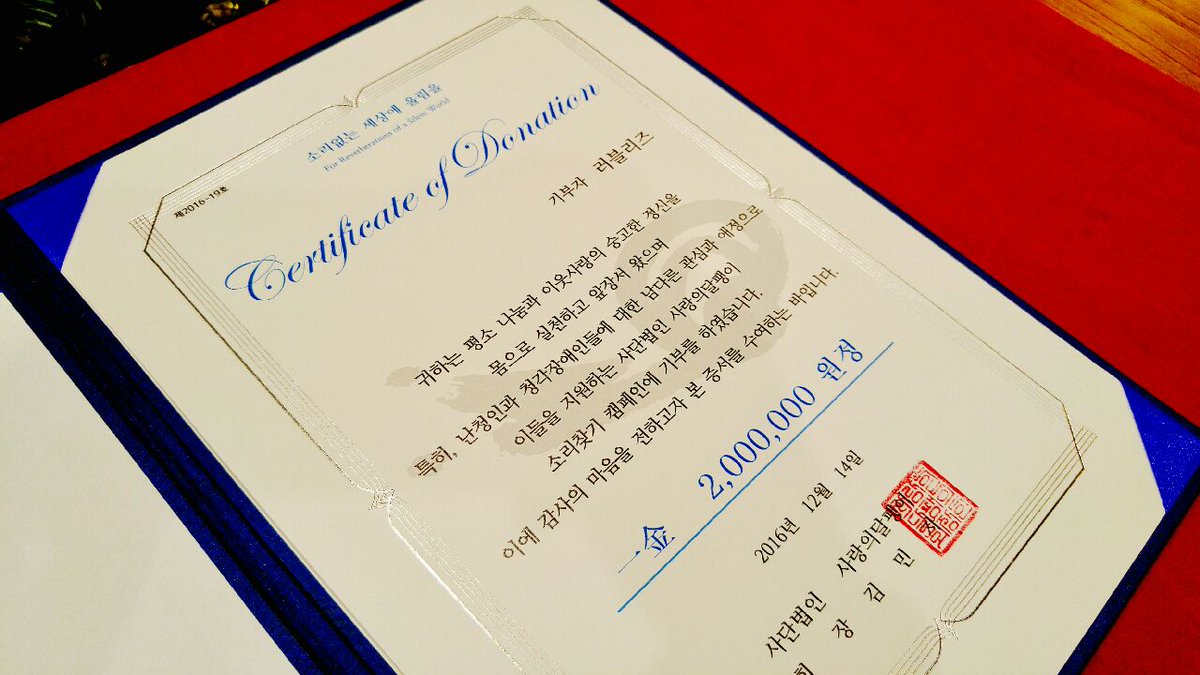 소리없는 세상에 울림을
For Reverberations of a Silent World
제2016-19호
Certificate of Donation
기부자 러블리즈
귀하는 평소 나눔과 이웃사랑의 숭고한 정신을
몸으로 실천하고 앞장서 왔으며
특허, 난청인과 청각장애인들에 대한 남다른 관심과 애정으로
이들을 지원하는 사단법인 사랑의달팽이
소리찾기 캠페인에 기부를 하였습니다.
이에 감사의 마음을 전하고자 본 증서를 수여하는 바입니다.
一金 2,000,000 원정
2016년 12월 14일
사단법인 사랑의달팽이
회 장 김 민 자